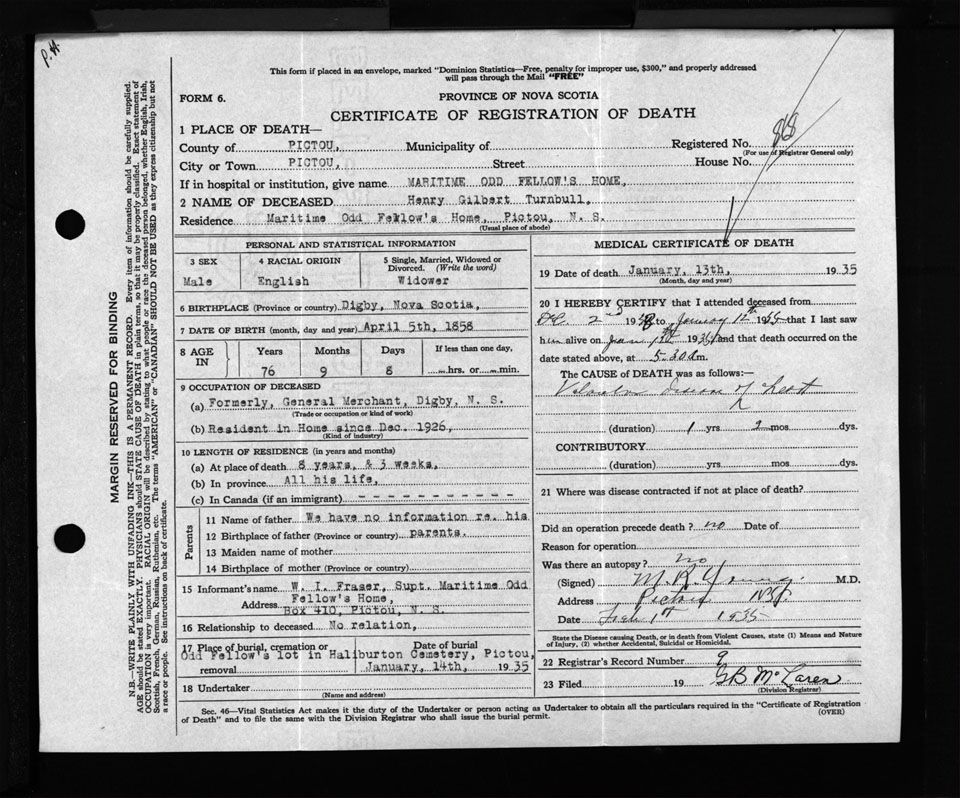 P.H.
This form if placed in an envelope, marked "Dominion Statistics—Free, penalty for improper use, $300," and properly addressed
will pass through the Mail "FREE"
FORM 6.
PROVINCE OF NOVA SCOTIA
CERTIFICATE OF REGISTRATION OF DEATH
1 PLACE OF DEATH—
Registered No. 868
(For use of Registrar General only)
County of PICTOU, Municipality of
City or Town PICTOU, Street House No.
If in hospital or institution, give name MARITIME ODD FELLOW'S HOME,
2 NAME OF DECEASED Henry Gilbert Turnbull,
Residence Maritime Odd Fellow's Home, Pictou, N. S.
(Usual place of abode)
PERSONAL AND STATISTICAL INFORMATION
3 SEX 4 RACIAL ORIGIN 5 Single, Married, Widowed or
Divorced. (Write the word)
Male English Widower
6 BIRTHPLACE (Province or country) Digby, Nova Scotia,
7 DATE OF BIRTH (month, day and year) April 5th, 1858
8 AGE IN Years Months Days If less than one day,
76 9 8 hrs. or min.
9 OCCUPATION OF DECEASED
(a) Formerly, General Merchant, Digby, N. S.
(Trade or occupation or kind of work)
(b) Resident in Home since Dec. 1926,
(Kind of industry)
10 LENGTH OF RESIDENCE (in years and months)
(a) At place of death 8 years, & 3 weeks,
(b) In province All his life,
(c) In Canada (if an immigrant) - - - - - - - - - - -
Parents
11 Name of father We have no information re. his
12 Birthplace of father (Province or country) parents.
13 Maiden name of mother
14 Birthplace of mother (Province or country)
15 Informant's name W. I. Fraser, Supt. Maritime Odd
Address Fellow's Home,
Box 410, Pictou, N. S.
16 Relationship to deceased No relation,
17 Place of burial, cremation or Date of burial
Odd Fellow's lot in Haliburton Cemetery, Pictou,
removal January, 14th, 19 35
18 Undertaker
(Name and address)
MEDICAL CERTIFICATE OF DEATH
19 Date of death January, 13th, 19 35
(Month, day and year)
20 I HEREBY CERTIFY that I attended deceased from
2nd 19 to January 19 35 that I last saw
him alive on Jan 19 and that death occurred on the
date stated above, at 5.30 m.
The CAUSE of DEATH was as follows:—
Valvular Disease of heart
(duration) 1 yrs 2 mos dys.
CONTRIBUTORY
(duration) yrs mos dys.
21 Where was disease contracted if not at place of death?
Did an operation precede death? no Date of
Reason for operation
Was there an autopsy? no
(Signed) M. R. Young. M.D.
Address Pictou N.S.
Date Feb 1935
State the Disease causing Death, or in death from Violent Causes, state (1) Means and Nature
of Injury, (2) whether Accidental, Suicidal or Homicidal.
22 Registrar's Record Number 9
23 Filed 19 GB McLaren
(Division Registrar)
Sec. 46—Vital Statistics Act makes it the duty of the Undertaker or person acting as Undertaker to obtain all the particulars required in the "Certificate of Registration
of Death" and to file the same with the Division Registrar who shall issue the burial permit. (OVER)
MARGIN RESERVED FOR BINDING
N.B.—WRITE PLAINLY WITH UNFADING INK—THIS IS A PERMANENT RECORD. Every item of information should be carefully supplied.
AGE should be stated EXACTLY. PHYSICIANS should STATE CAUSE OF DEATH in plain terms, so that it may be properly classified. Exact statement of
OCCUPATION is very important. RACIAL ORIGIN will be described by stating to what people or race the deceased person belonged, whether English, Irish,
Scottish, French, German, Russian, Ruthenian, etc. The terms "AMERICAN" or "CANADIAN" SHOULD NOT BE USED as they express citizenship but not
a race or people. See instructions on back of certificate.